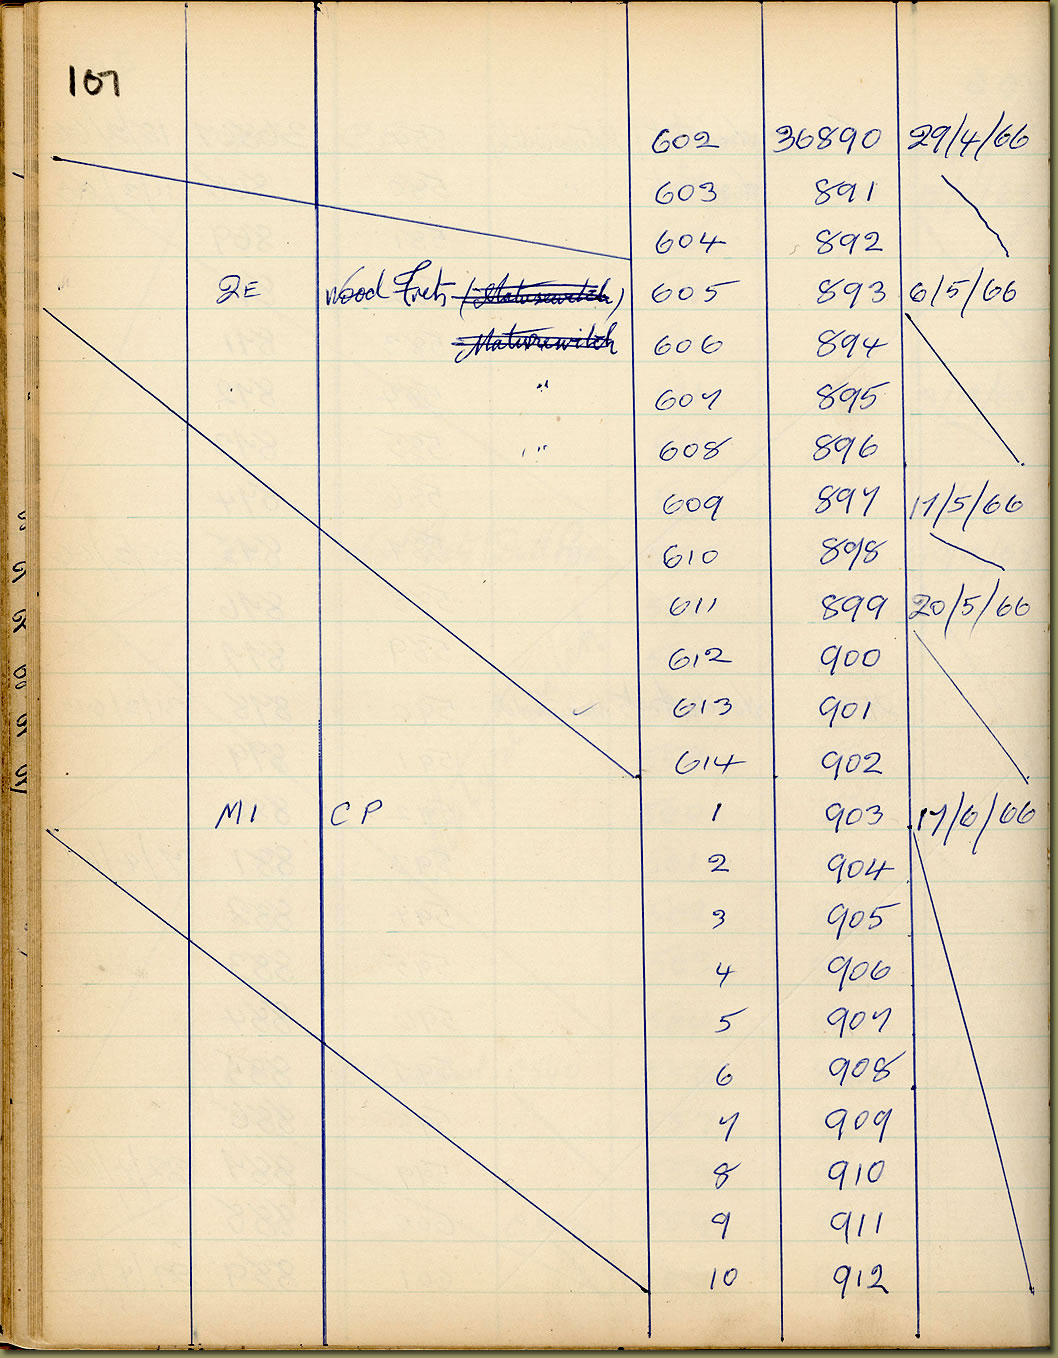 107
602 36890 29/4/66
603 891
604 892
2E Wood Frets 605 893 6/5/66
606 894
" 607 895
" 608 896
609 897 17/5/66
610 898
611 899 20/5/66
612 900
613 901
614 902
M1 CP 1 903 17/6/66
2 904
3 905
4 906
5 907
6 908
7 909
8 910
9 911
10 912